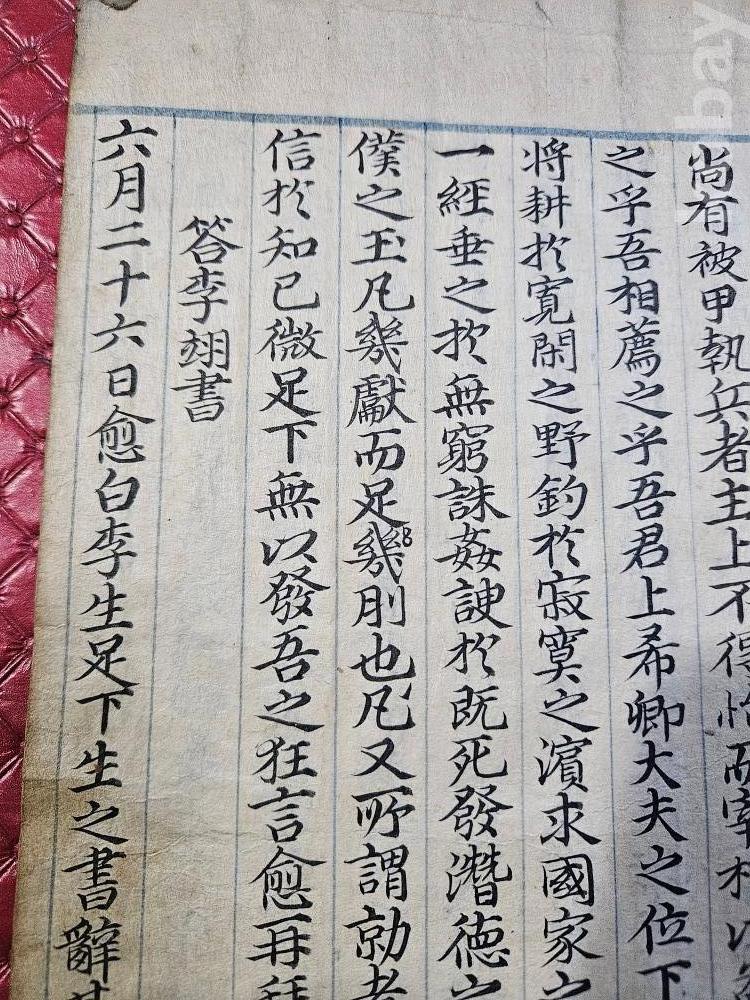 尚有被甲執兵者主上不得怡而宰相以
之乎吾相薦之乎吾君上希卿大夫之位下
将耕扵寛閑之野釣扵寂寞之濱求國家之
一經垂之扵無窮誅姦諛扵既死發潛德之
僕之玉凡幾獻而足幾刖也凡又所謂勍者
信扵知己微足下無以發吾之狂言愈再拜
答李翊書
六月二十六日愈白李生足下生之書辭甚
bay